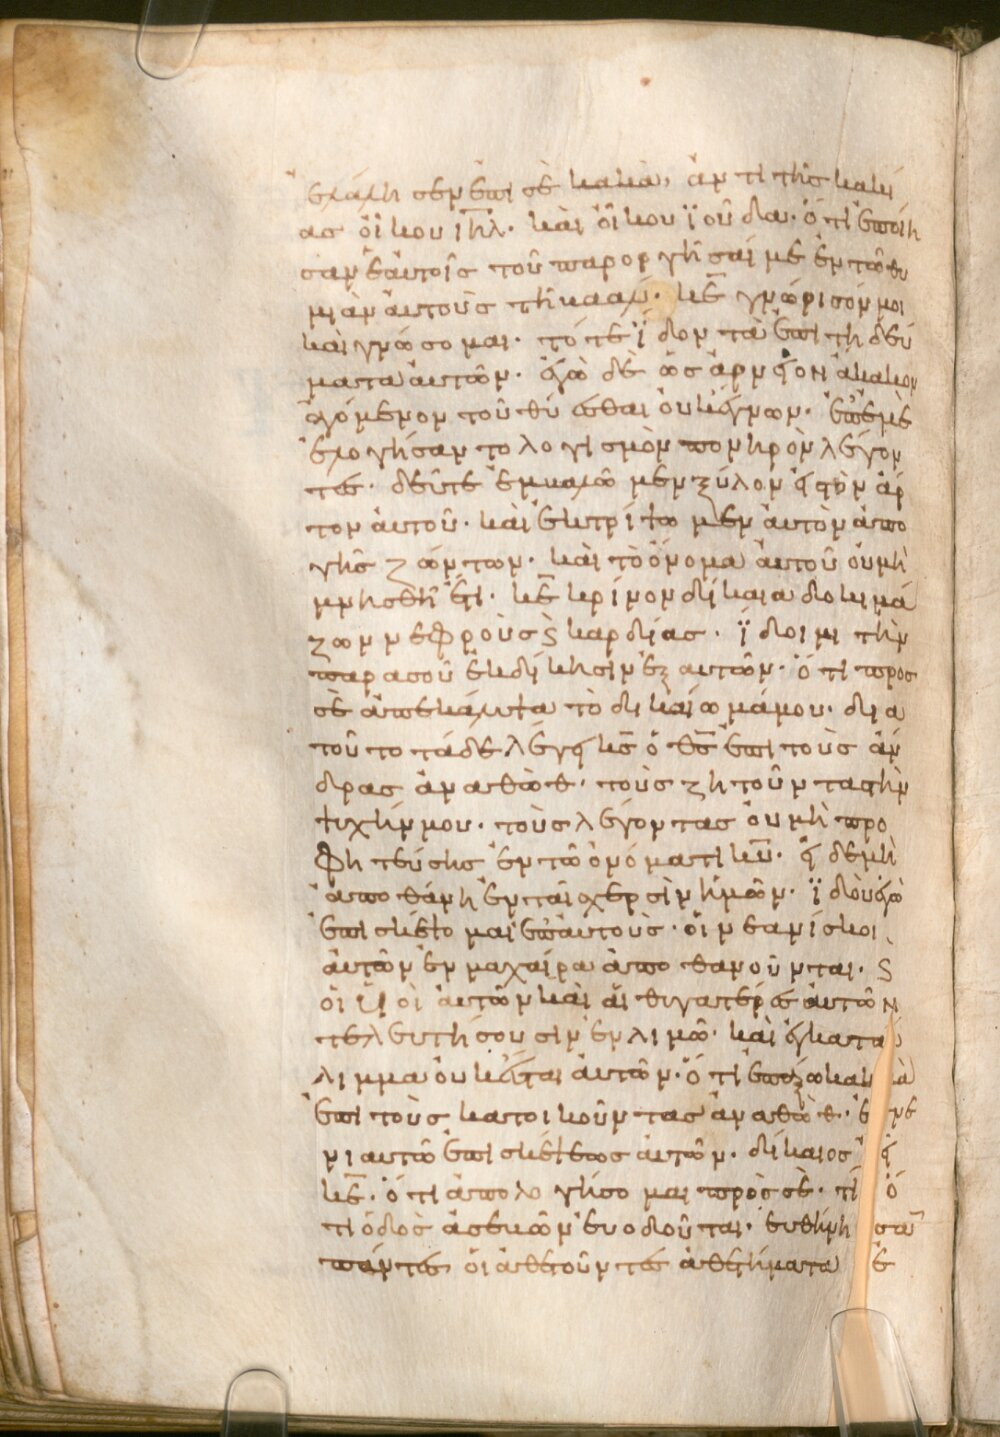 ἐλάλησεν ἐπὶ σὲ κακὰ, ἀντὶ τῆς κακί
ας οἴκου ιηλ· καὶ οἴκου ϊούδα· ὅτι ἐποίη
σαν ἑαυτοῖς τοῦ παροργῆσαί με ἐν τῶ θυ
μιᾶν αὐτοὺς τῆ βααλ· κε γνώρισόν μοι
καὶ γνώσομαι· τότε ἴδον τὰ ἐπιτηδεύ
ματα αὐτῶν· ἐγὼ δὲ ὡς ἀρνίον ἄκακον
ἀγόμενον τοῦ θύεσθαι οὐκ ἔγνων· ἐπ' ἐμὲ
ἐλογήσαντο λογισμὸν πονηρὸν λέγον
τες· δεῦτε ἐμβαλῶμεν ξύλον εἰς τὸν ἄρ
τον αὐτοῦ· καὶ ἐκτρίψωμεν αὐτὸν ἀπὸ
γῆς ζώντων· καὶ τὸ ὄνομα αὐτοῦ οὐ μὴ
μνησθῆ ἔτι· κε κρίνον δίκαια δοκιμά
ζων νεφροὺς ϗ καρδίας· ἴδοιμι τὴν
παρα σοῦ ἐκδίκησιν ἐξ αὐτῶν· ὅτι προς
σὲ ἀπεκάλυψα τὸ δικαίωμά μου· δια
τοῦτο τάδε λέγει κς ὁ θς ἐπὶ τοὺς ἄν
δρας ἀναθὼθ· τοὺς ζητοῦντας τὴν
ψυχήν μου· τοὺς λέγοντας οὐ μὴ προ
φητεύσης ἐν τῶ ὀνόματι κυ· εἰ δὲ μὴ
ἀποθάνη ἐν ταῖς χερσὶν ἡμῶν· ϊδοὺ ἐγὼ
ἐπισκέψομαι ἐπ' αὐτοὺς· οἱ νεανίσκοι
αὐτῶν ἐν μαχαίρα ἀποθανοῦνται· ϗ
οἱ υἱοὶ αὐτῶν καὶ αἱ θυγατέρες αὐτῶν
τελευτήσουσιν ἐν λιμῶ· καὶ ἐγκατά
λιμμα οὐκ ἔσται αὐτῶν· ὅτι ἐπάξω κακὰ
ἐπὶ τοὺς κατοικοῦντας ἀναθὼθ· ἐν ἐ
νιαυτῶ ἐπισκέψεως αὐτῶν· δίκαιος εἶ
κε· ὅτι ἀπολογήσομαι πρὸς σὲ· τί ὅ
τι ὁδὸς ἀσεβῶν εὐοδοῦται· εὐθήνησαν
πάντες οἱ ἀθετοῦντες ἀθετήματα ἐ